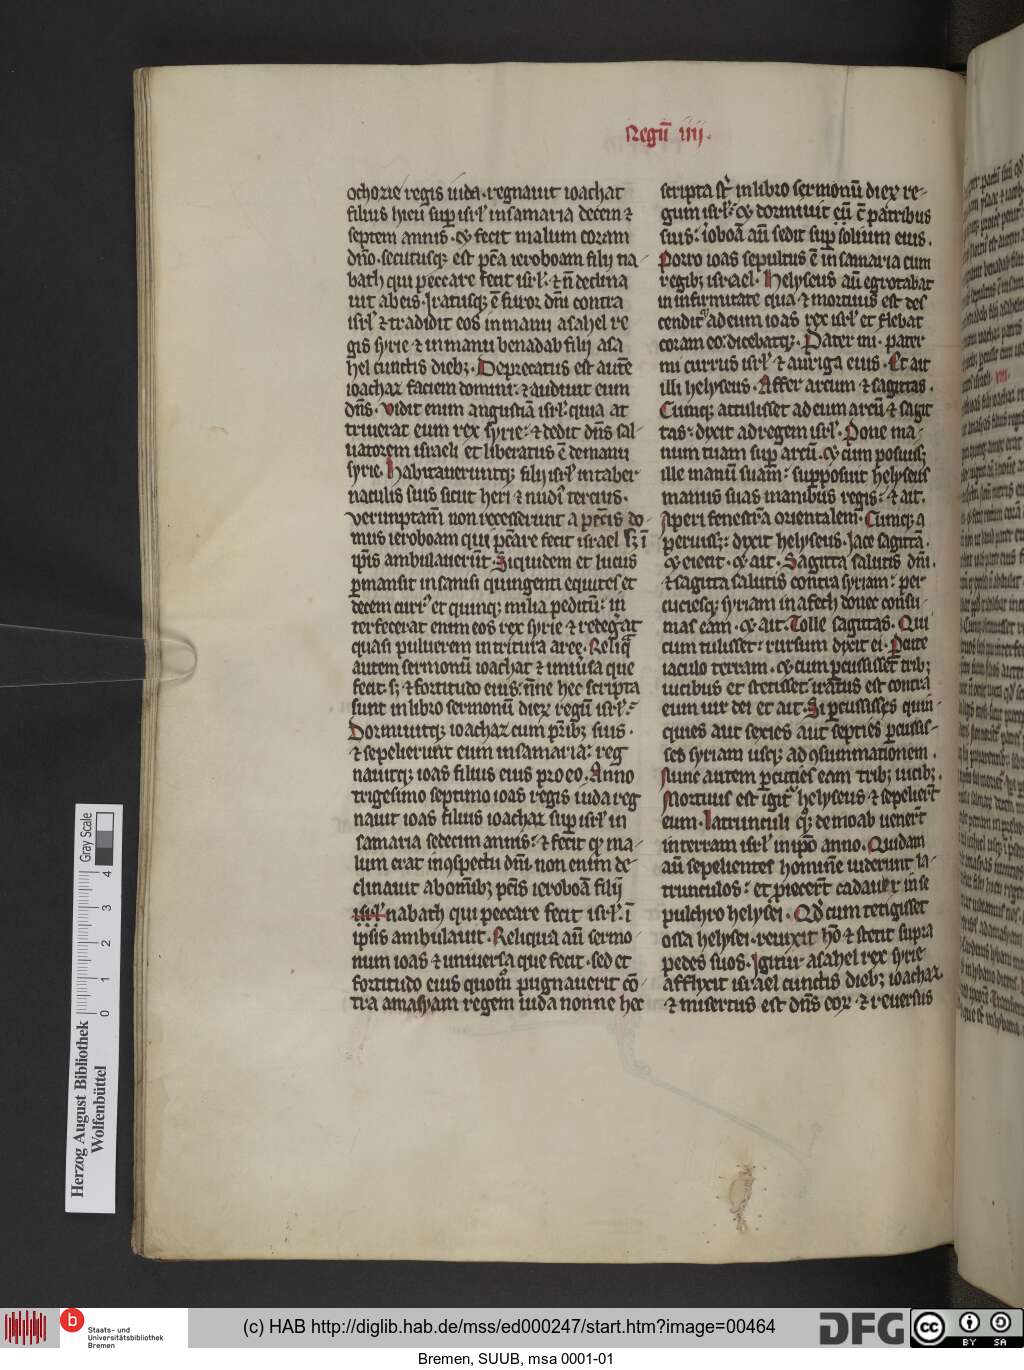 Regũ iiij.
ochozie regis iuda. regnauit ioachat
filius hieu sup̱ isrl̓ in samaria decem ⁊
septem annis. ⁊ fecit malum coram
dño. secutusq; est pc̃a ieroboam filij na-
bath qui peccare fecit isrl̓. ⁊ ñ declina
uit ab eis. Iratusq; ẽ furor dñi contra
isrl̓ ⁊ tradidit eos in manu asahel re
gis syrie ⁊ in manu benadab filij asa
hel cunctis dieb;. Deprecatus est autẽ
ioachaz faciem domini. ⁊ audiuit eum
dñs. vidit enim angustiã isrl̓ quia at
triuerat eum rex syrie. ⁊ dedit dñs sal-
uatorem israeli et liberatus ẽ de manu
syrie. Habitaueruntq; filij isrl̓ in taber
naculis suis sicut heri ⁊ nudi̓ tercius.
verumptam̃ non recesserunt a pc̃cis do-
mus ieroboam qui pc̃care fecit israel s; ĩ
ip̃is ambulauerũt. Siquidem et lucus
p̱mansit in samaria quingenti equites et
decem curr̓ et quinq; milia peditũ. in
terfecerat enim eos rex syrie ⁊ redegat
quasi puluerem in tritura aree. Reliq̃
autem sermonũ ioachat ⁊ uniũsa que
fecit. s; ⁊ fortitudo eius. ñne hec scripta
sunt in libro sermonũ diez regũ isrl̓.
Dormiuitq; ioachaz cum pr̃ib; suis.
⁊ sepelierunt eum in samaria: reg
nauitq; ioas filius eius pro eo. Anno
trigesimo septimo ioas regis iuda reg
nauit ioas filius ioachaz sup̱ isrl̓ in
samaria sedecim annis. ⁊ fecit qđ ma-
lum erat in ↄspectu dñi. non enim de-
clinauit ab omĩb; pc̃is ieroboã filij
isrl̓ nabath qui peccare fecit isrl̓. ĩ
ipsis ambulauit. Reliqua aũ sermo-
num ioas ⁊ uniuersa que fecit. sed et
fortitudo eius quom̃ pugnauerit cõ-
tra amasyam regem iuda nonne hec
scripta st̃ in libro sermonũ diez re-
gum isrl̓. ⁊ dormiuit eũ c̃ patribus
suis. ieroboã aũ sedit sup̱ solium eius.
Porro ioas sepultus ẽ in samaria cum
regib; israel. Helyseus aũ egrotabat
in infirmitate qua ⁊ mortuus est. des
cenditq; ad eum ioas rex isrl̓ et flebat
coram eo. dicebatq;. Pater mi. pater
mi currus isrl̓ ⁊ auriga eius. Et ait
illi helyseus. Affer arcum ⁊ sagittas.
Cumq; attulisset ad eum arcũ ⁊ sagit
tas. dixit ad regem isrl̓. Pone ma-
num tuam sup̱ arcũ. ⁊ cum posuiss;
ille manũ suam. supposuit helyseus
manus suas manibus regis. ⁊ ait.
Aperi fenestrã orientalem̃. Cumq; a
peruiss;. dixit helyseus. Iace sagittã.
⁊ eiecit. ⁊ ait. Sagitta salutis dñi.
⁊ sagitta salutis contra syriam. per
cuciesq; syriam in afech donec consũ-
mas eam. ⁊ ait. Tolle sagittas. Qui
cum tulisset. rursum dixit ei. P̱cute
iaculo terram. ⁊ cum p̱cussisset trib;
uicibus et stetisset. iratus est contra
eum uir dei et ait. Si p̱cussisses quin-
quies aut sexies aut septies p̱cussis-
ses syriam usq; ad ↄsummationem.
Nunc autem p̱cuties eam trib; uicib;.
Mortuus est igit̃ helyseus ⁊ sepelier̃t
eum. Latrunculi q; de moab uener̃t
in terram isrl̓ in ip̃o anno. Quidam
aũ sepelientes hominẽ uiderunt la-
trunculos. et ꝓiecer̃t cadauer in se
pulchro helysei. Qđ cum tetigisset
ossa helysei. reuixit hõ ⁊ stetit supra
pedes suos. Igitur asahel rex syrie
afflixit israel cunctis dieb; ioachaz
⁊ misertus est dñs eoꝝ ⁊ reuersus
Gray Scale
4
3
2
1
0
Herzog August Bibliothek
Wolfenbüttel
b
Staats- und
Universitätsbibliothek
Bremen
(c) HAB http://diglib.hab.de/mss/ed000247/start.htm?image=00464
DFG
cc
BY SA
Bremen, SUUB, msa 0001-01